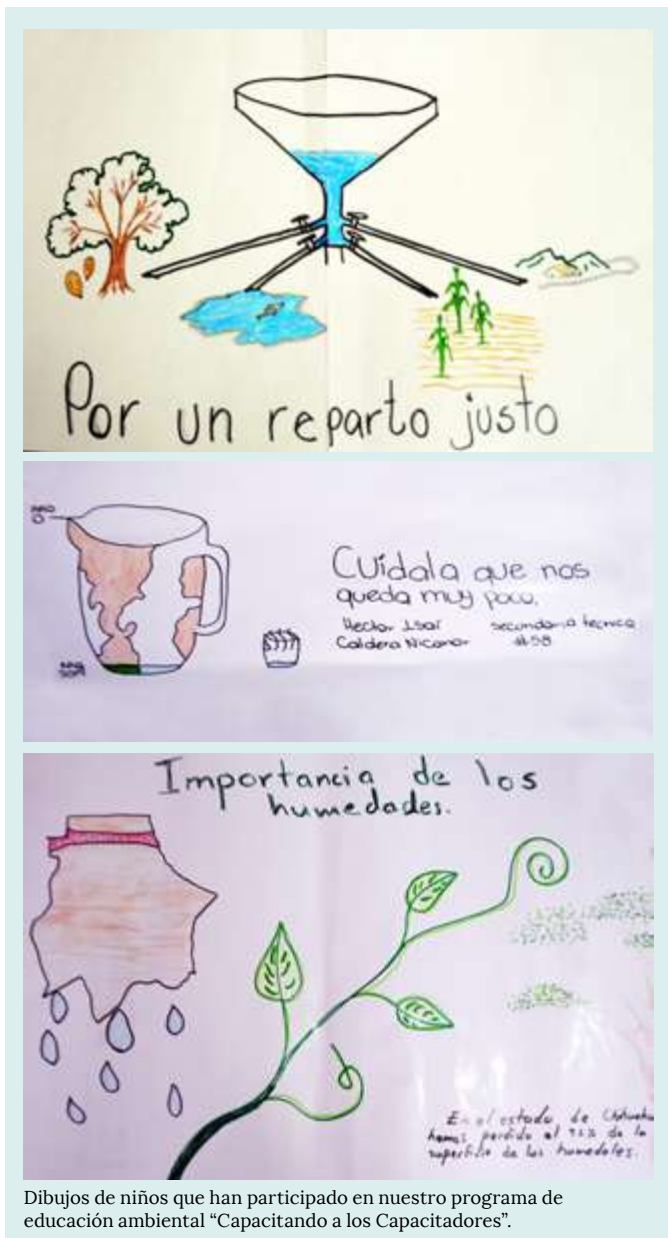 Por un reparto justo
Cuídala que nos
queda muy poco.
Hector Isai secundaria tecnica
Caldera Nicanor #58
Importancia de los
humedades.
En el estado de
hemos perdido el de la
superficie de los humedales.
Dibujos de niños que han participado en nuestro programa de
educación ambiental “Capacitando a los Capacitadores”.